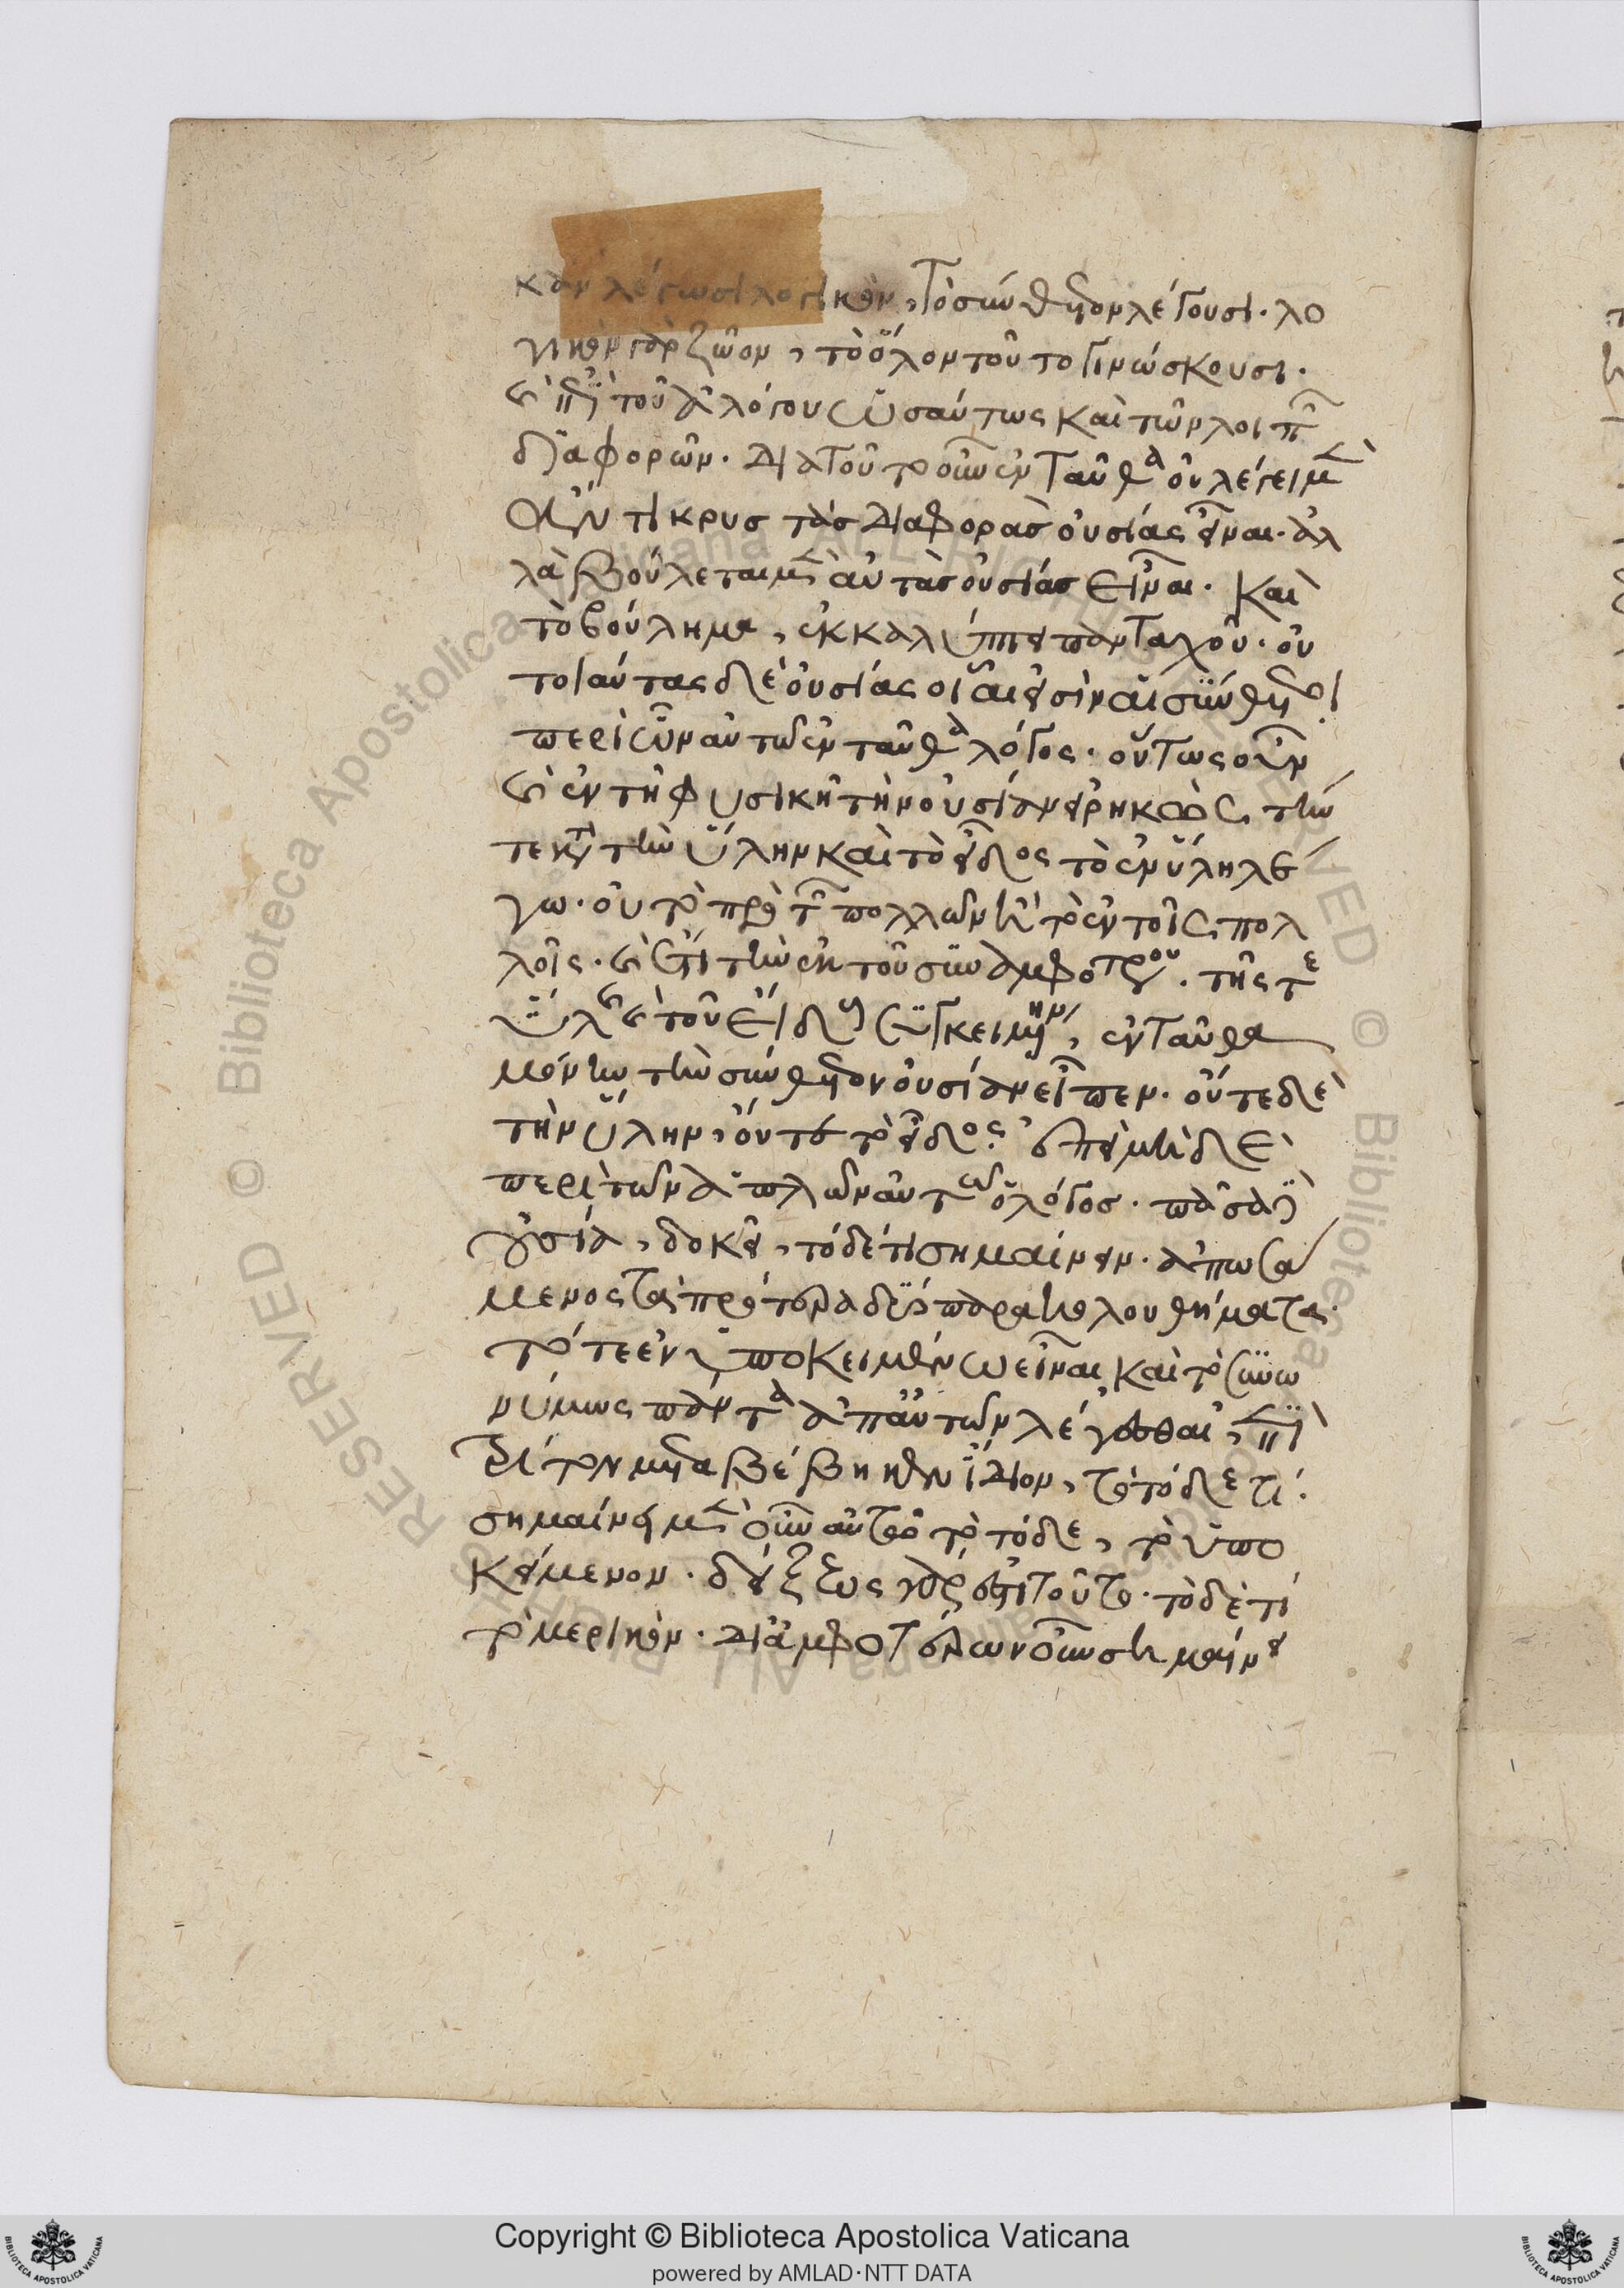 κἂν λέγωσι λογικὸν, τὸ σύνθετον λέγουσι. λο
γικὸν γὰρ ζῶον, τὸ ὅλον τοῦτο γινώσκουσι.
καὶ ἐπὶ τοῦ ἀλόγου ὡσαύτως καὶ τῶν λοιπῶν
διαφορῶν. διατοῦτο οὖν ἐνταῦθα οὐ λέγει μὲν
ἄντικρυσ τὰσ διαφορὰσ οὐσίας εἶναι. ἀλ
λὰ βούλεται μὲν αὐτὰσ οὐσίασ εἶναι. καὶ
τὸ βούλημα, ἐκκαλύπτει πανταχοῦ. οὐ
τοιαύτας δὲ οὐσίας οἷαι εἰσὶν αἱ σύνθετοι
περὶ ὧν αὐτῶ ἐνταῦθα λόγος. οὕτως οὖν
καὶ ἐν τῆ φυσικῆ τὴν οὐσίαν εἰρηκὼς, τήν
τε κατὰ τὴν ὕλην καὶ τὸ εἶδος τὸ ἐν ὕλη λέ
γω. οὐ τὸ πρὸ τῶν πολλῶν καὶ τὸ ἐν τοῖς πολ
λοῖς. καὶ ἔτι τὴν ἐκ τοῦ συναμφοτέρου. τῆς τε
ὕλης καὶ τοῦ εἴδους συγκειμένην, ἐνταῦθα
μόνην τὴν σύνθετον οὐσίαν εἶπεν. οὔτε δὲ
τὴν ὕλην, οὔτε τὸ εἶδος. ἐπειμὴ δὲ
περὶ τῶν ἁπλῶν αὐτῶ ὁ λόγοσ. πᾶσα δὲ
οὐσία, δοκεῖ, τόδέ τι σημαίνειν. ἀπωσά
μενος τὰ πρότερα δύο παρακολουθήματα.
τό τε ἐν ὑποκειμένω εἶναι, καὶ τὸ συνω
νύμως πάντα ἀπ' αὐτῶν λέγεσθαι, ἐπὶ
τρίτον μεταβέβηκεν ἴδιον, τὸ τόδε τί.
σημαίνει μὲν οὖν αὐτοῦ τὸ τόδε, τὸ ὑπο
κείμενον. δείξεως γάρ ἐστι τοῦτο. τὸ δὲ τί
τὸ μερικὸν. δι' ἀμφοτέρων οὖν σημαίνει